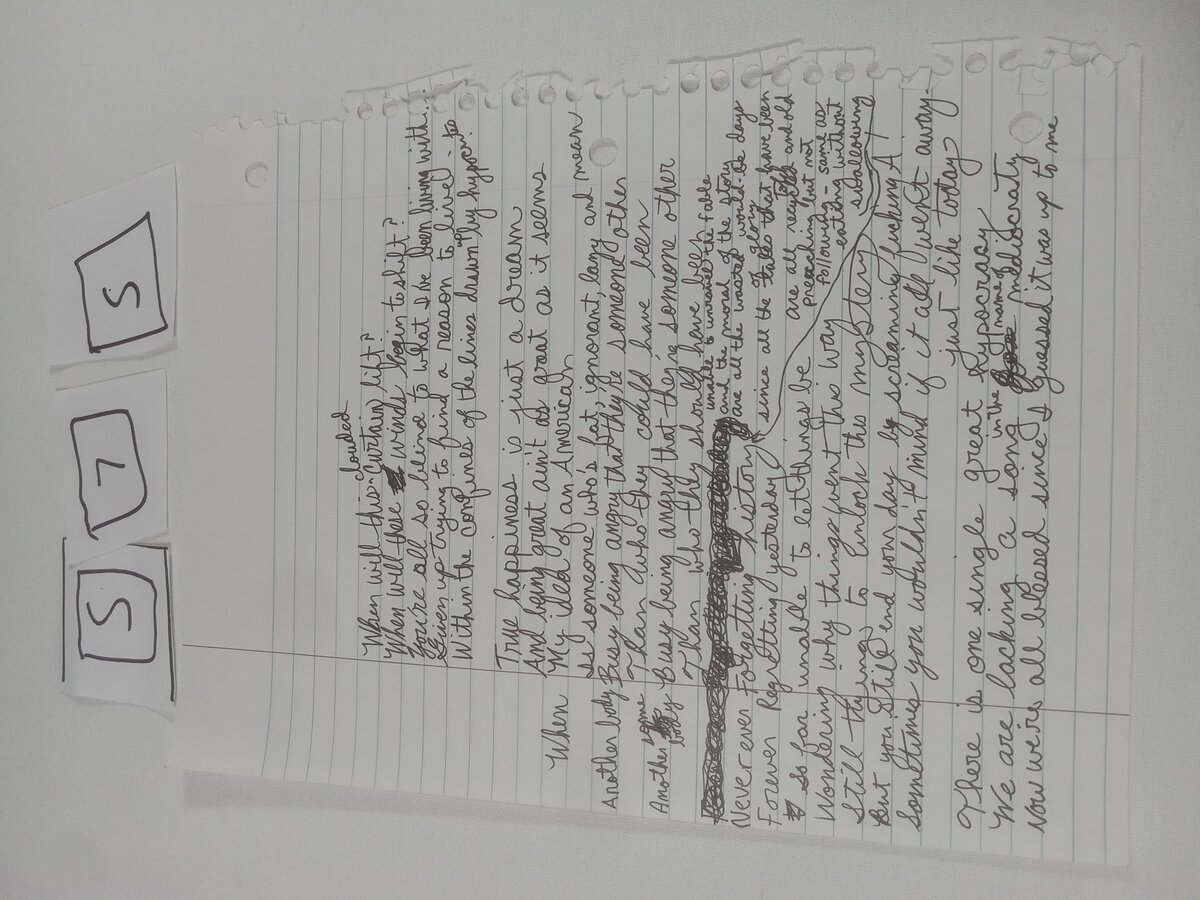 S 7 5
When will this clouded curtain lift?
When will these winds begin to shift?
You're all so blind to what I've been living with...
Given up trying to find a reason to live
Within the confines of the lines drawn up by hypocrites
True happiness is just a dream
And being great ain't as great as it seems
When My idea of an American
is someone who's fat, ignorant, lazy and mean
Another body Busy being angry that they're someone other
Than who they could have been
Another some body Busy being angry that they're someone other
Than who they should have been
unable to unravel the fable
and the moral of the story
are all the wasted would-be days
of glory
Never ever Forgetting history
since all the tales that have been told
are all recycled and old
preaching but not
following - same as
eating without
swallowing
Forever Regretting yesterday
So far unable to let things be
Wondering why things went this way
Still trying to unlock this mystery
But you still end your day by screaming fucking A!
Sometimes you wouldn't mind if it all went away.
just like today
There is one single great hypocrasy
We are lacking a song in the name of mediocraty
Now we're all bleased since I guessed it was up to me